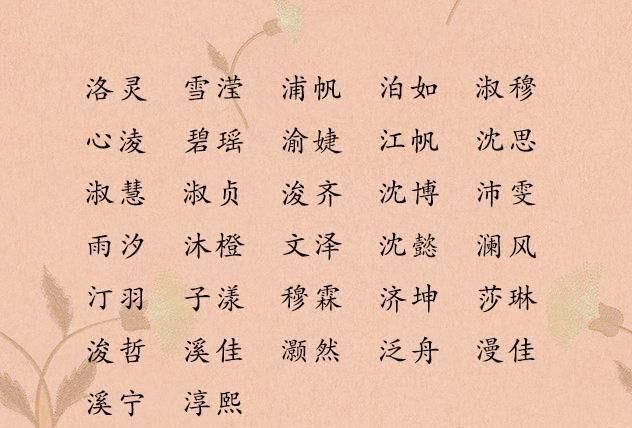 洛灵 雪滢 浦帆 泊如 淑穆
心淩 碧瑶 渝婕 江帆 沈思
淑慧 淑贞 浚齐 沈博 沛雯
雨汐 沐橙 文泽 沈懿 澜风
汀羽 子漾 穆霖 济坤 莎琳
浚哲 溪佳 灏然 泛舟 漫佳
溪宁 淳熙